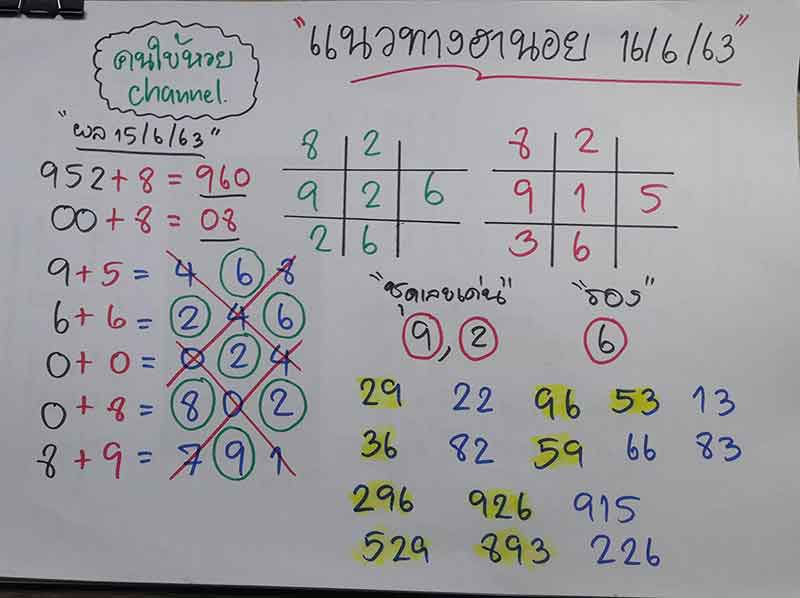 "แนวทางฮานอย 16/6/63"
คนใบ้หวย
channel.
"ผล 15/6/63"
952+8 = 960
00+8 = 08
9+5 = 4 6 8
6+6 = 2 4 6
0+0 = 0 2 4
0+8 = 8 0 2
8+9 = 7 9 1
8 2
9 2 6
2 6
8 2
9 1 5
3 6
"ชุดเลขเด่น" "รอง"
9, 2 6
29 22 96 53 13
36 82 59 66 83
296 926 915
529 893 226